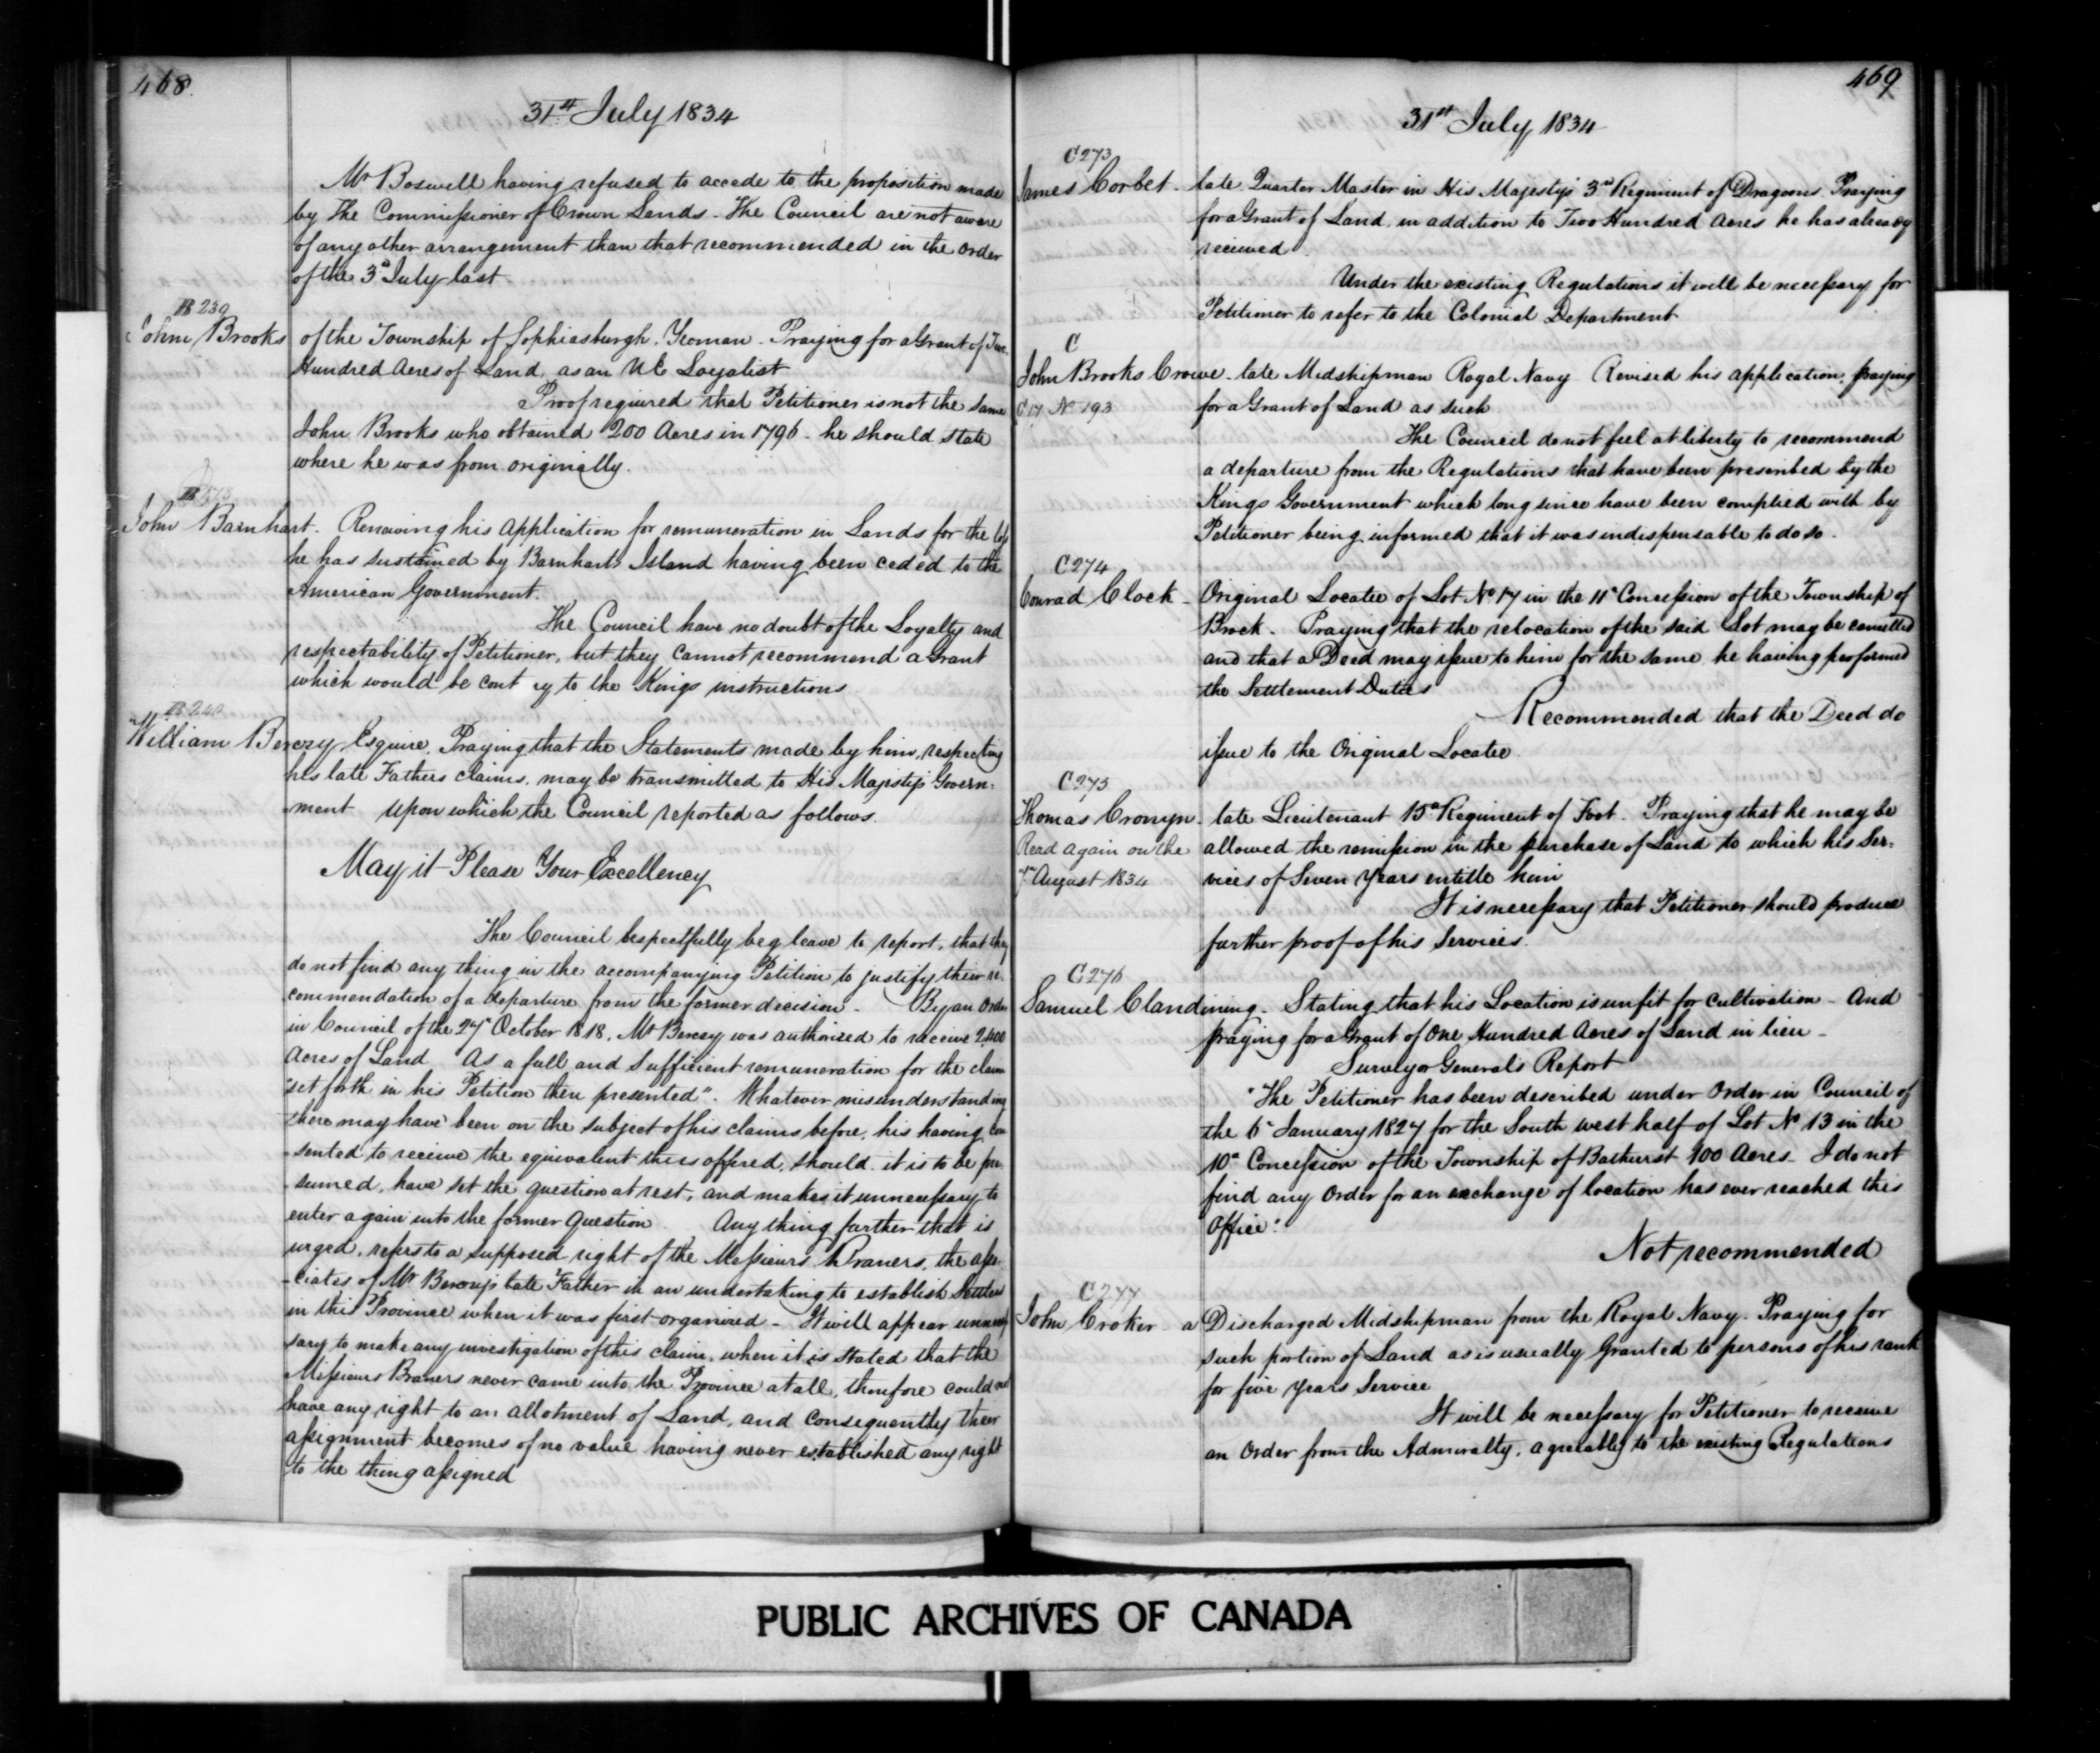 468.
31st July 1834
Mr Boswell having refused to accede to the proposition made
by The Commissioner of Crown Lands - The Council are not aware
of any other arrangement than that recommended in the order
of the 3d July last
B 239
John Brooks of the Township of Sophiasburgh, Yeoman - Praying for a Grant of Two
Hundred Acres of Land, as an UE Loyalist
Proof required that Petitioner is not the same
John Brooks who obtained 200 Acres in 1796 - he should state
where he was from originially.
John Barnhart. Renewing his Application for remuneration in Lands for the loss
he has sustained by Barnharts Island having been ceded to the
American Government.
The Council have no doubt of the Loyalty and
respectability of Petitioner, but they cannot recommend a Grant
which would be cont ry to the Kings instructions
B 240
William Berczy Esquire. Praying that the Statements made by him, respecting
his late Fathers claims, may be transmitted to His Majestys Govern-
-ment upon which the Council reported as follows.
May it Please Your Excellency
The Council bespectfully beg leave to report, that they
do not find any thing in the accompanying Petition to justify their re-
commendation of a departure from the former decision - By an Order
in Council of the 27th October 1818, Mr Berczy was authorised to receive 2,400
Acres of Land As a full and sufficient remuneration for the claim
"set forth in his Petition then presented". Whatever misunderstanding
there may have been on the subject of his claims before, his having con
-sented to receive the equivalent thus offered, should, it is to be pre
-sumed, have set the question at rest, and makes it unnecessary to
enter again into the former question. Any thing further that is
urged, refers to a supposed right of the Messieurs Braners, the asso-
-ciates of Mr Berczys late Father in an undertaking to establish Settlers
in this Province when it was first organized - It will appear unneces
sary to make any investigation of this claim, when it is stated that the
Messieurs Braners never came into the Province at all, therefore could not
have any right to an allotment of Land, and consequently their
assignment becomes of no value having never established any right
to the thing assigned
469
31st July 1834
C 273
James Corbet - late Quarter Master in His Majestys 3rd Regiment of Dragoons Praying
for a Grant of Land in addition to Two Hundred Acres he has already
received
Under the existing Regulations it will be necessary for
Petitioner to refer to the Colonial Department
C
John Brooks Crowe - late Midshipman Royal Navy Revised his application, praying
C 17 No 193 for a Grant of Land as such
The Council do not feel at liberty to recommend
a departure from the Regulations that have been prescribed by the
Kings Government which long since have been complied with by
Petitioner being informed that it was indispensable to do so.
C 274
Conrad Clock - Original Locatee of Lot No 17 in the 11th Concession of the Township of
Brock - Praying that the relocation of the said Lot may be cancelled
and that a Deed may issue to him for the same he having performed
the Settlement Duties
Recommended that the Deed do
issue to the Original Locatee.
C 275
Thomas Cronyn - late Lieutenant 15th Regiment of Foot. Praying that he may be
Read again on the allowed the remission in the purchase of Land to which his Ser-
7th August 1834 vices of Seven Years entitle him
It is necessary that Petitioner should produce
further proof of his Services.
C 276
Samuel Clandining - Stating that his Location is unfit for cultivation - And
praying for a Grant of One Hundred Acres of Land in lieu -
Surveyor Generals Report
"The Petitioner has been described under Order in Council of
the 6th January 1827 for the South west half of Lot No 13 in the
10th Concession of the Township of Bathurst 100 Acres - I do not
find any Order for an exchange of location has ever reached this
Office"
Not recommended
C 277
John Croker - a Discharged Midshipman from the Royal Navy - Praying for
such portion of Land as is usually Granted to persons of his rank
for five Years Service
It will be necessary for Petitioner to receive
an Order from the Admiralty, agreeably to the existing Regulations
PUBLIC ARCHIVES OF CANADA